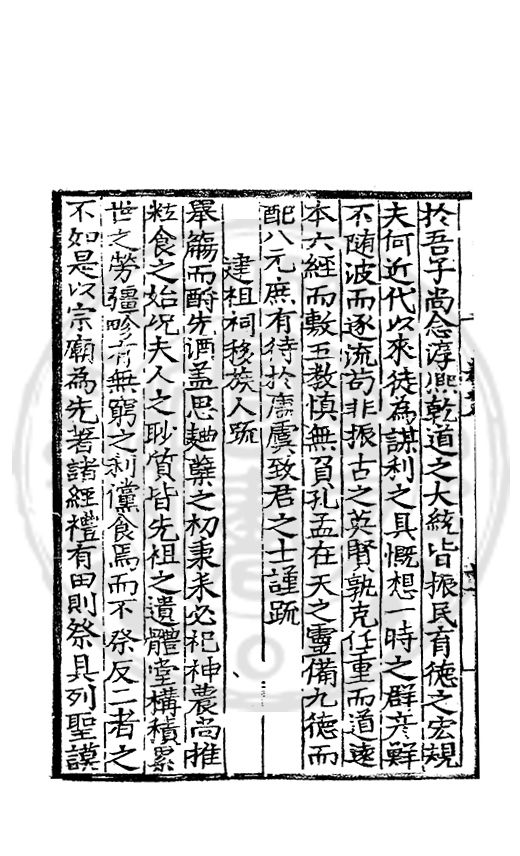 於吾子尚念淳熙乾道之大統皆振民育德之宏規
夫何近代以來徒為謀利之具慨想一時之群彥鮮
不随波而逐流苟非振古之英賢孰克任重而道遠
本六經而敷五教慎無負孔孟在天之靈備九德而
配八元庶有待於唐虞致君之士謹䟽
建祖祠移族人䟽
舉觴而酹先酒盖思麯櫱之初秉耒必祀神農尚推
粒食之始况夫人之眇質皆先祖之遺體堂構積累
世之勞疆畛有無窮之利儻食焉而不祭反二者之
不如是以宗廟為先著諸經禮有田則祭具列聖謨